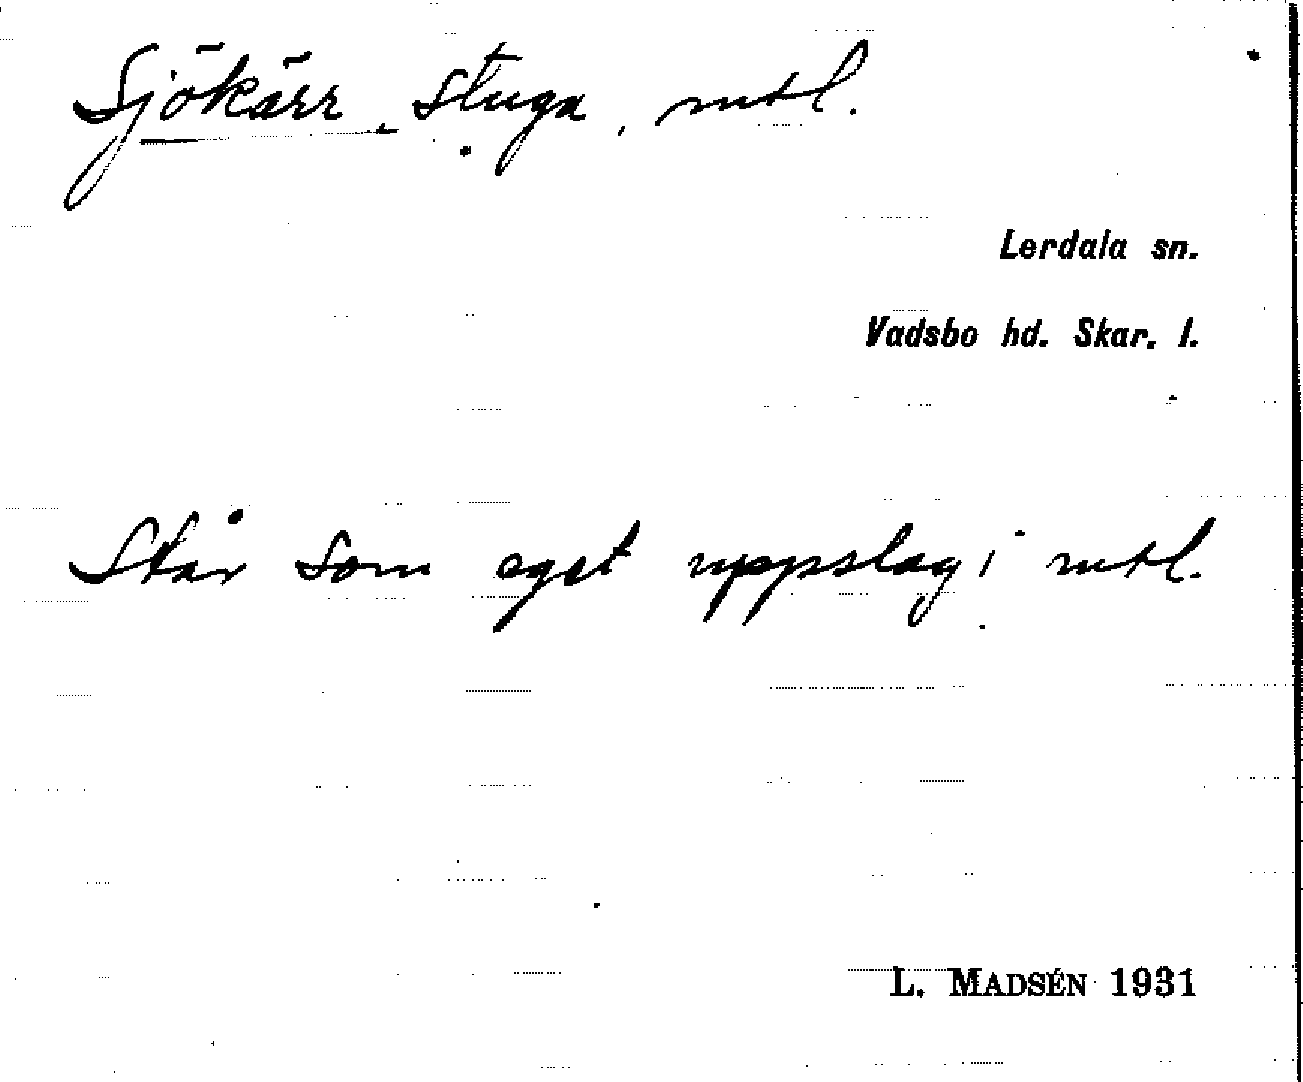 Sjökärr, stuga, mtl.
Lerdala sn.
Vadsbo hd. Skar. l.
Står som eget uppslag i mtl.
L. MADSÉN 1931